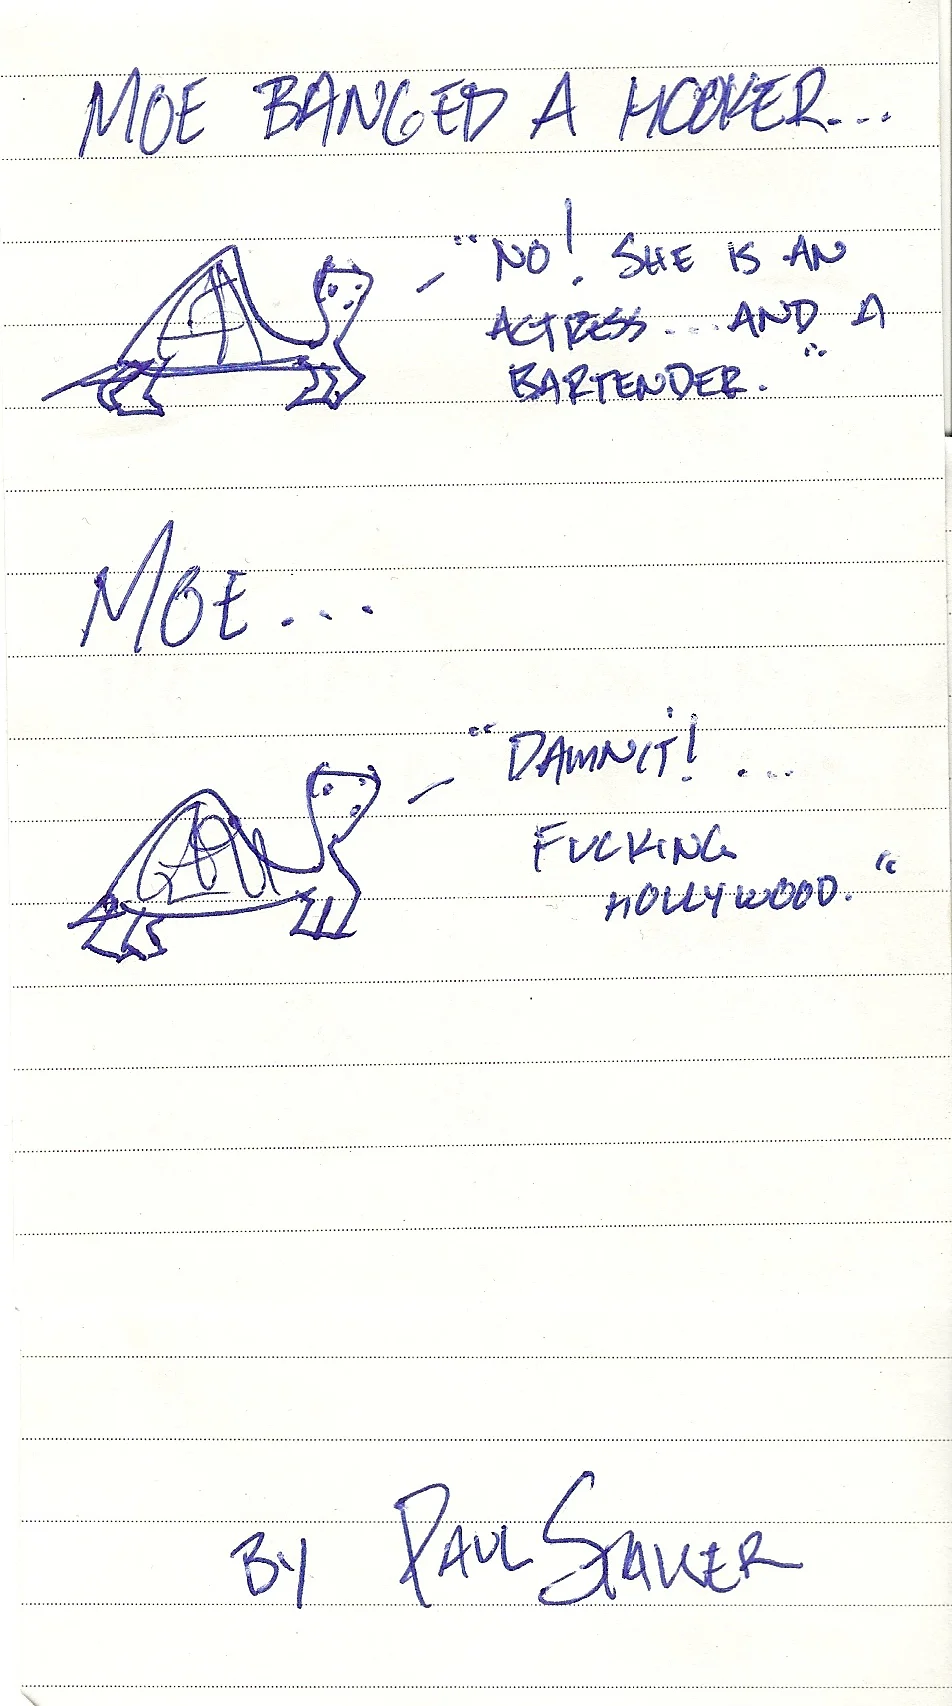 MOE BANGED A HOOKER...
"NO! SHE IS AN
ACTRESS...AND A
BARTENDER."
MOE...
"DAMNIT! ...
FUCKING
HOLLYWOOD."
BY PAUL